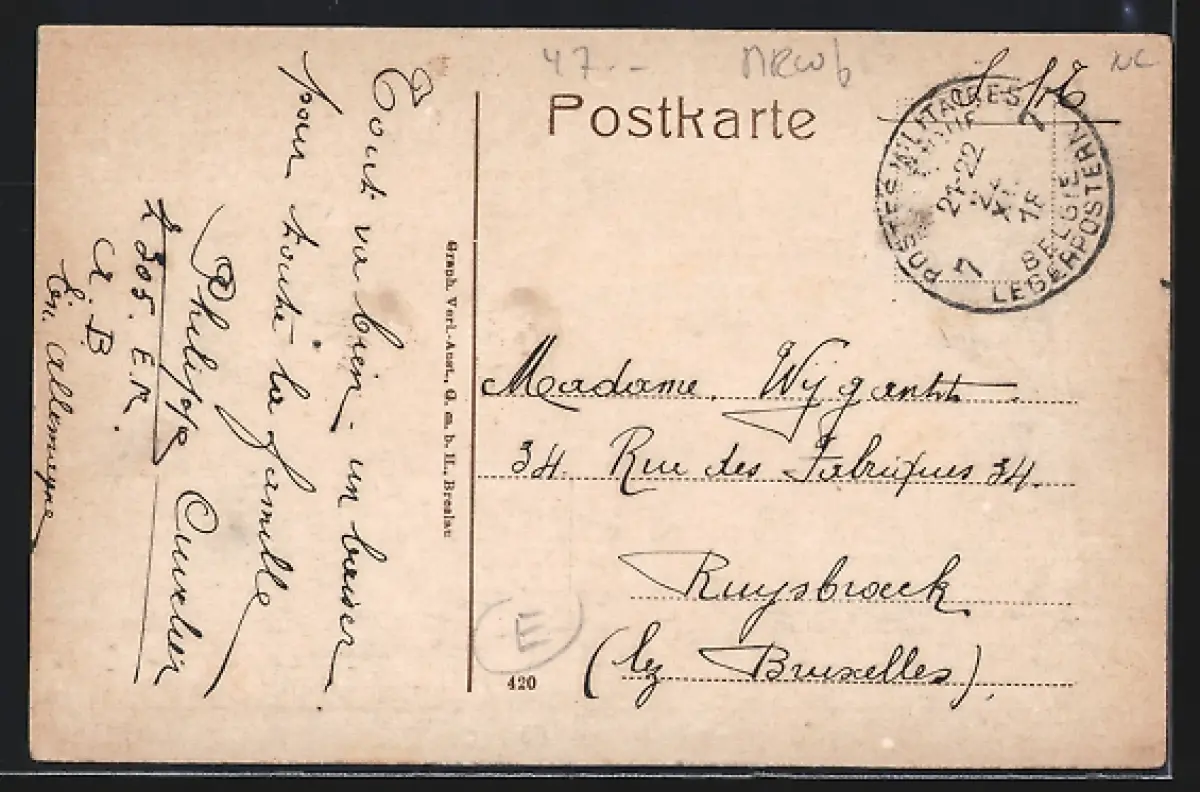 47.-
MRWb
NC
S.M.
Postkarte
POSTES MILITAIRES
BELGIE
LEGERPOSTERIJ
21-22
XI
7
7
Tout va bien - un baiser
pour toute la famille
Philippe Cuvelier
Z 305. E.R.
A. B
En. Allemagne
Graph. Verl.-Anst., G. m. b. H., Breslau
Madame. Wijgantt.
34. Rue des Fabriques 34.
Ruysbroeck
(lez Bruxelles).
E
420